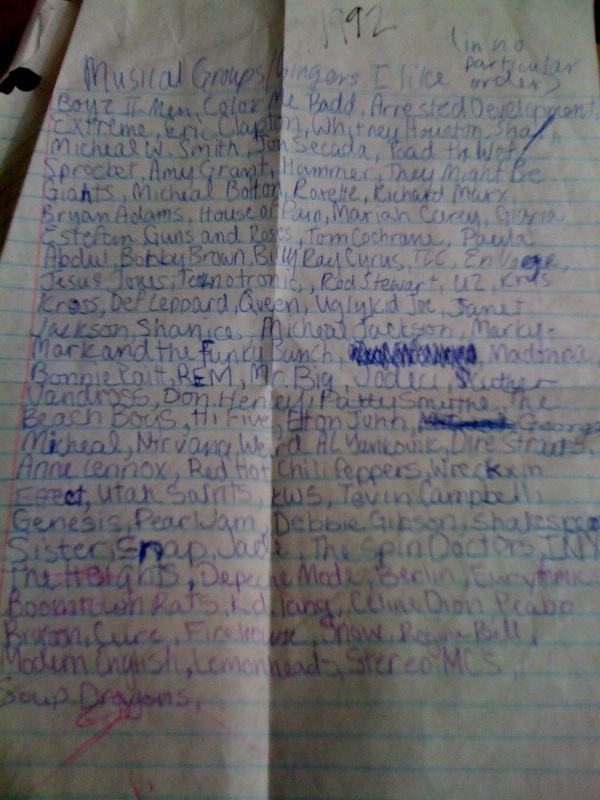 1992
(in no
particular
order)
Musical Groups/Singers I like
Boyz II Men, Color Me Badd, Arrested Development,
Extreme, Eric Clapton, Whitney Houston, Shai,
Micheal W. Smith, Jon Secada, Toad th Wet
Sprocket, Amy Grant, Hammer, They Might Be
Giants, Micheal Bolton, Roxette, Richard Marx,
Bryan Adams, House of Pain, Mariah Carey, Gloria
Estefan, Guns and Roses, Tom Cochrane, Paula
Abdul, Bobby Brown, Billy Ray Cyrus, TLC, En Vogue,
Jesus Jones, Technotronic, Rod Stewart, U2, Kris
Kross, Def Leppard, Queen, Ugly Kid Joe, Janet
Jackson, Shanice, Micheal Jackson, Marky-
Mark and the Funky Bunch, Madonna,
Bonnie Raitt, REM, Mr. Big, Jodeci, Luther
Vandross, Don Henley, Patty Smythe, The
Beach Boys, Hi Five, Elton John, George
Micheal, Nirvana, Weird Al Yankovik, Dire Straits,
Anne Lennox, Red Hot Chili Peppers, Wreckxin
Effect, Utah Saints, KWS, Tevin Campbell,
Genesis, Pearl Jam, Debbie Gibson, Shakespear
Sister, Snap, Jade, The Spin Doctors, INX
The Heights, Depeche Mode, Berlin, Eurythmics
Boomtown Rats, K.d. lang, Celine Dion, Peabo
Bryson, Cure, Firehouse, Snow, Regina Bell,
Modern English, Lemonheads, Stereo MCS,
Soup Dragons,